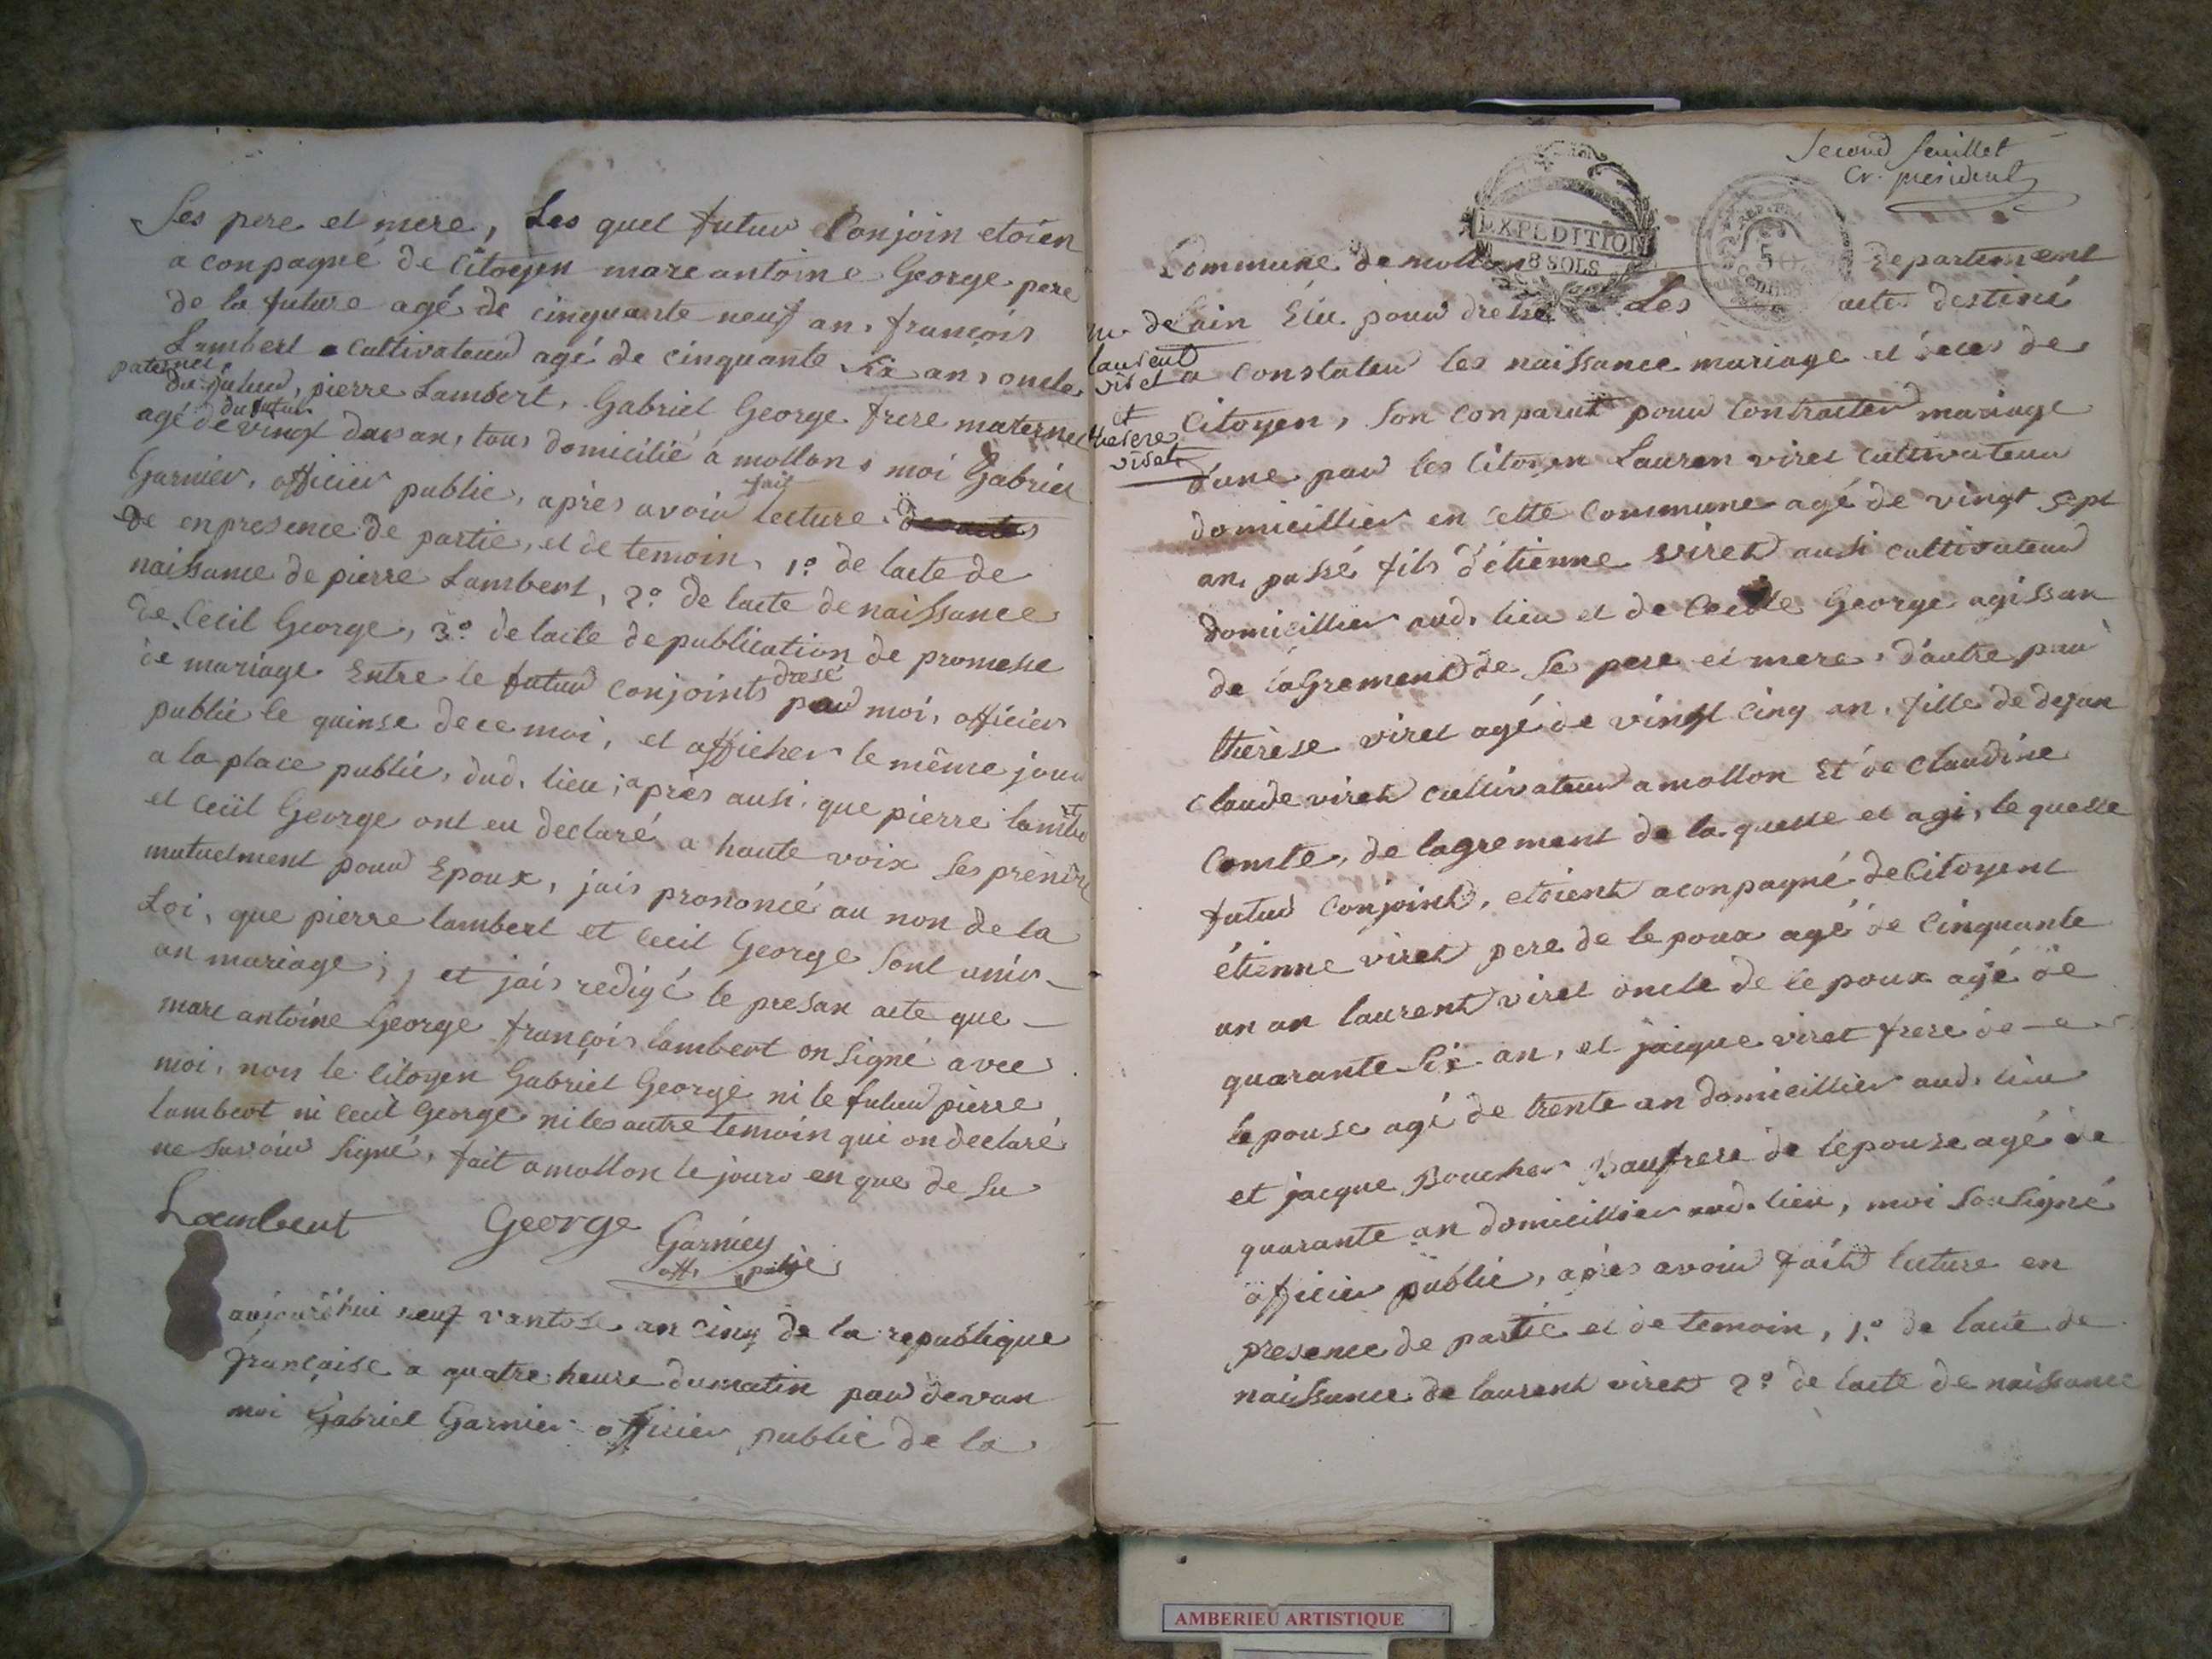 Ses pere et mere, Les quel futur Conjoin etoien
a conpagné de Citoyen marc antoine George pere
de la future agé de cinquante neuf an, françois
Lambert cultivateur agé de cinquante six ans oncle
paternel
du futur, pierre Lambert, Gabriel George frere maternel
du futur
agé de vingt dus an, tous domicilié a mollon, moi Gabriel
Garnier, officier public, après avoir fait lecture
de en presence de partie, et de temoin, 1.º de lacte de
naissance de pierre Lambert, 2.º de lacte de naissance
de Cecil George, 3.º de lacte de publication de promesse
de mariage Entre le futur conjoints dresé par moi, officier
public le quinse de ce moi, et afficher le même jour
a la place public, dud. lieu; après ausi, que pierre lambert
et Cecil George ont eu declaré a haute voix Ses prendre
mutuelment pour Epoux, jais prononcé au non de la
Loi, que pierre lambert et Cecil George Sont unis
an mariage, et jais redigé le presan acte que
marc antoine George françois lambert on Signé avec
moi, non le Citoyen Gabriel George ni le futur pierre
lambert ni Cecil George ni les autre temoin qui on declaré
ne Savoir Signé, fait a mollon le jours en que de Su
Lambert George Garnier
off. public
aujourd'hui neuf vantose an cinq de la republique
française a quatre heure du matin par devan
moi Gabriel Garnier officier public de la
Second feuillet
president
EXPEDITION
8 SOLS
REP. FRA
50
CENT
Commune de mollon Departement
de lain Élu pour dresse Les acte destiné
laurent
viret
et
therese
viret
a constater les naissance mariage et deces de
Citoyen, Son conparut pour Contracter mariage
dune par les Citoyen Lauren viret cultivateur
domicillier en cette Commune agé de vingt sept
an, passé fils d'étienne viret ausi cultivateur
domicillier aud. lieu et de Cecille George agissan
de lagrement de Se pere et mere, d'autre par
thérèse viret agé de vingt cinq an, fille de dejan
Claude viret cultivateur a mollon Et de Claudine
Comte, de lagrement de la quelle et agi, le quelle
futur Conjoint, etoient aconpagné de Citoyent
étienne viret pere de le poux agé de Cinquante
un an laurent viret oncle de le poux agé de
quarante Six an, et jaique viret frere de
lepouse agé de trente an domicillier aud. lieu
et jacque Boucher Baufrere de lepouse agé de
quarante an domicillier aud. lieu, moi Sousigné
officier public, après avoir fait lecture en
presence de partie et de temoin, 1.º de lacte de
naissance de laurent viret 2.º de lacte de naissance
AMBERIEU ARTISTIQUE